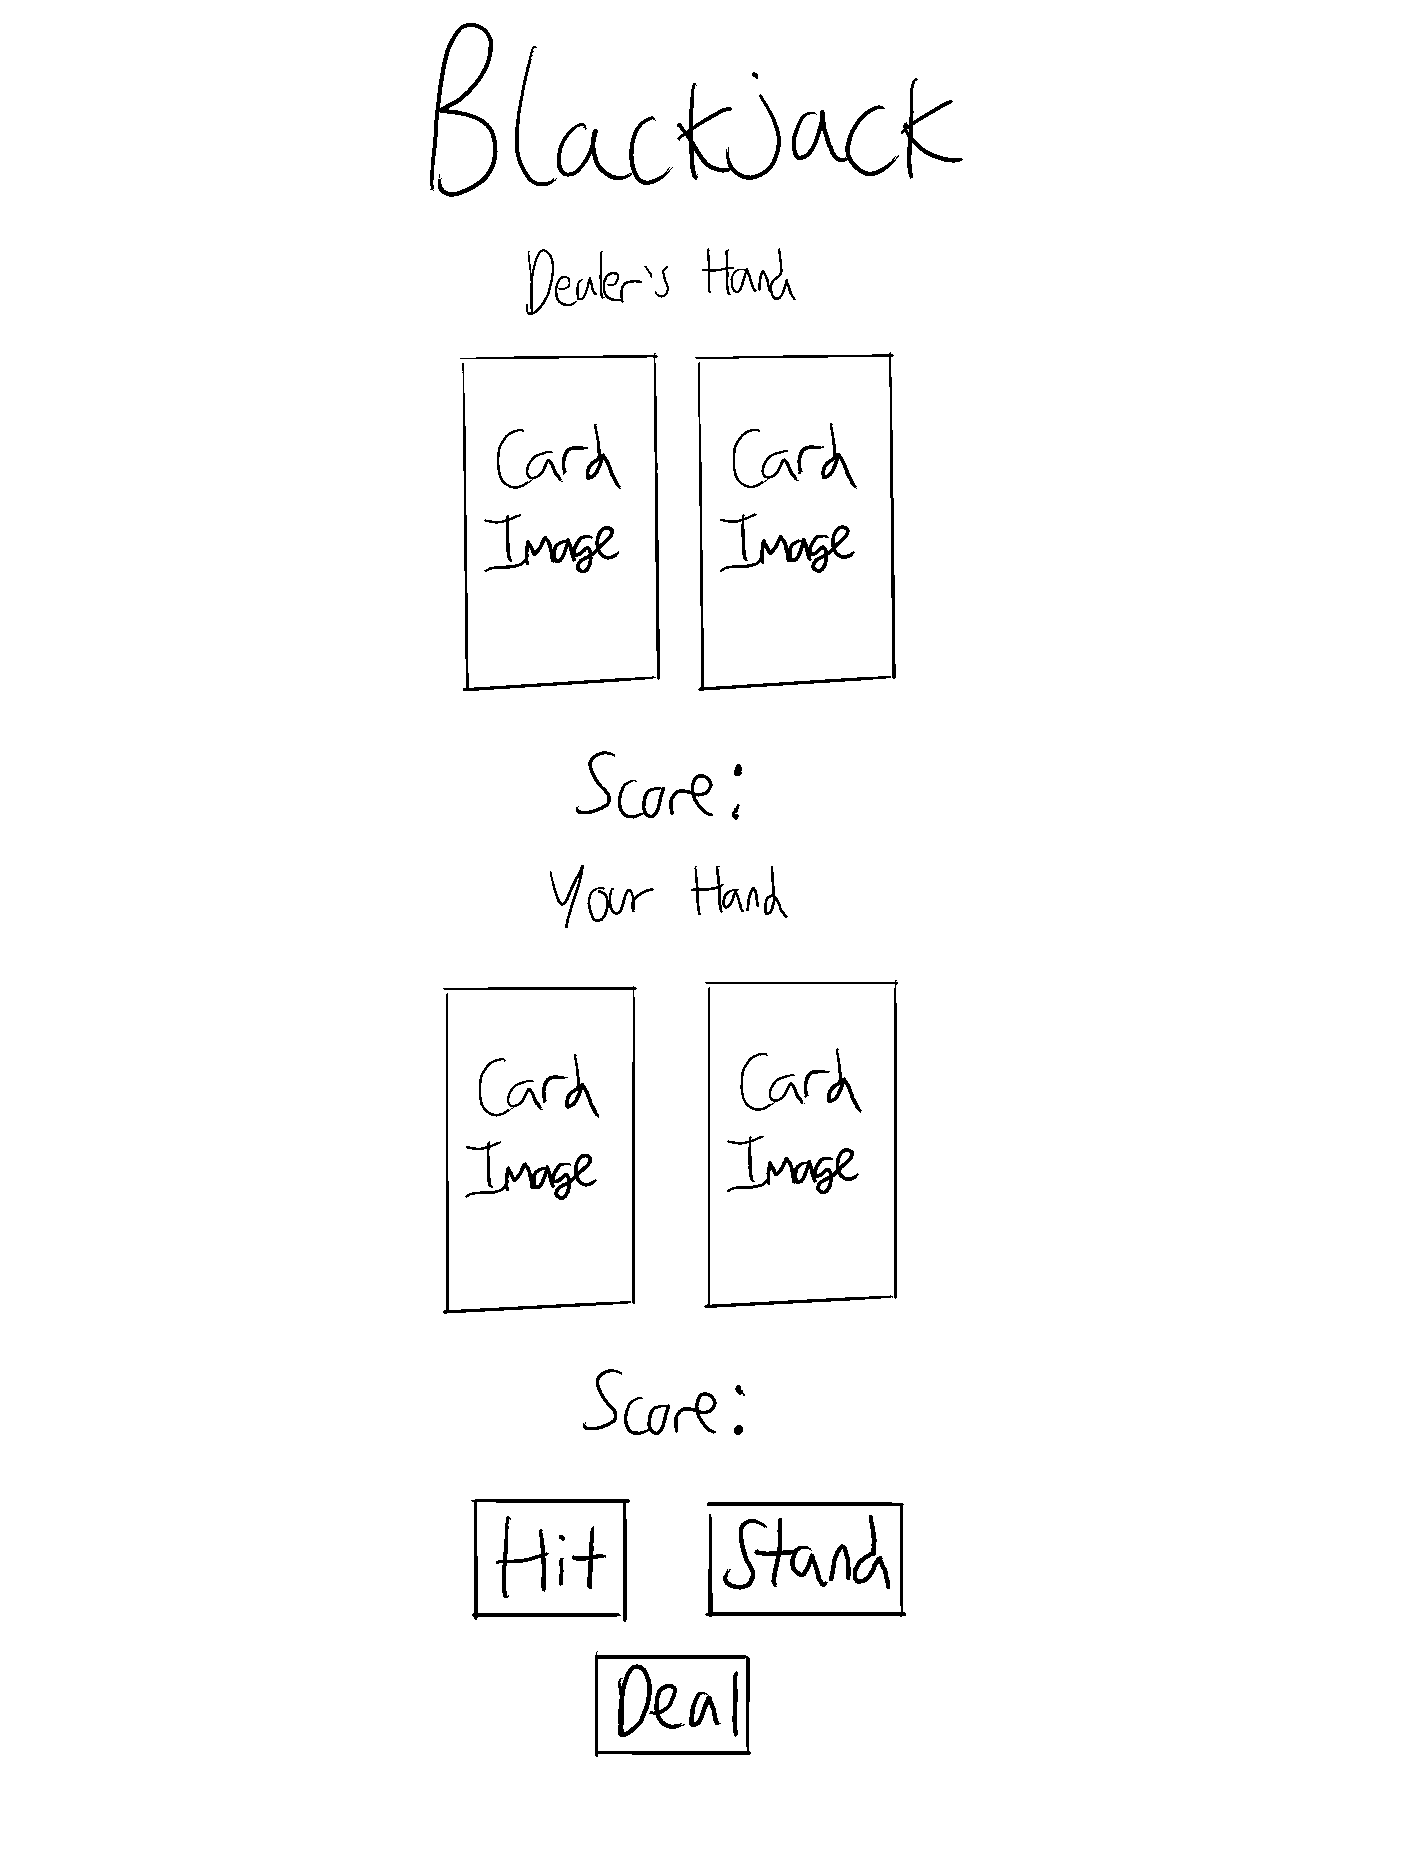 Blackjack
Dealer's Hand
Card Card
Image Image
Score:
Your Hand
Card Card
Image Image
Score:
Hit Stand
Deal